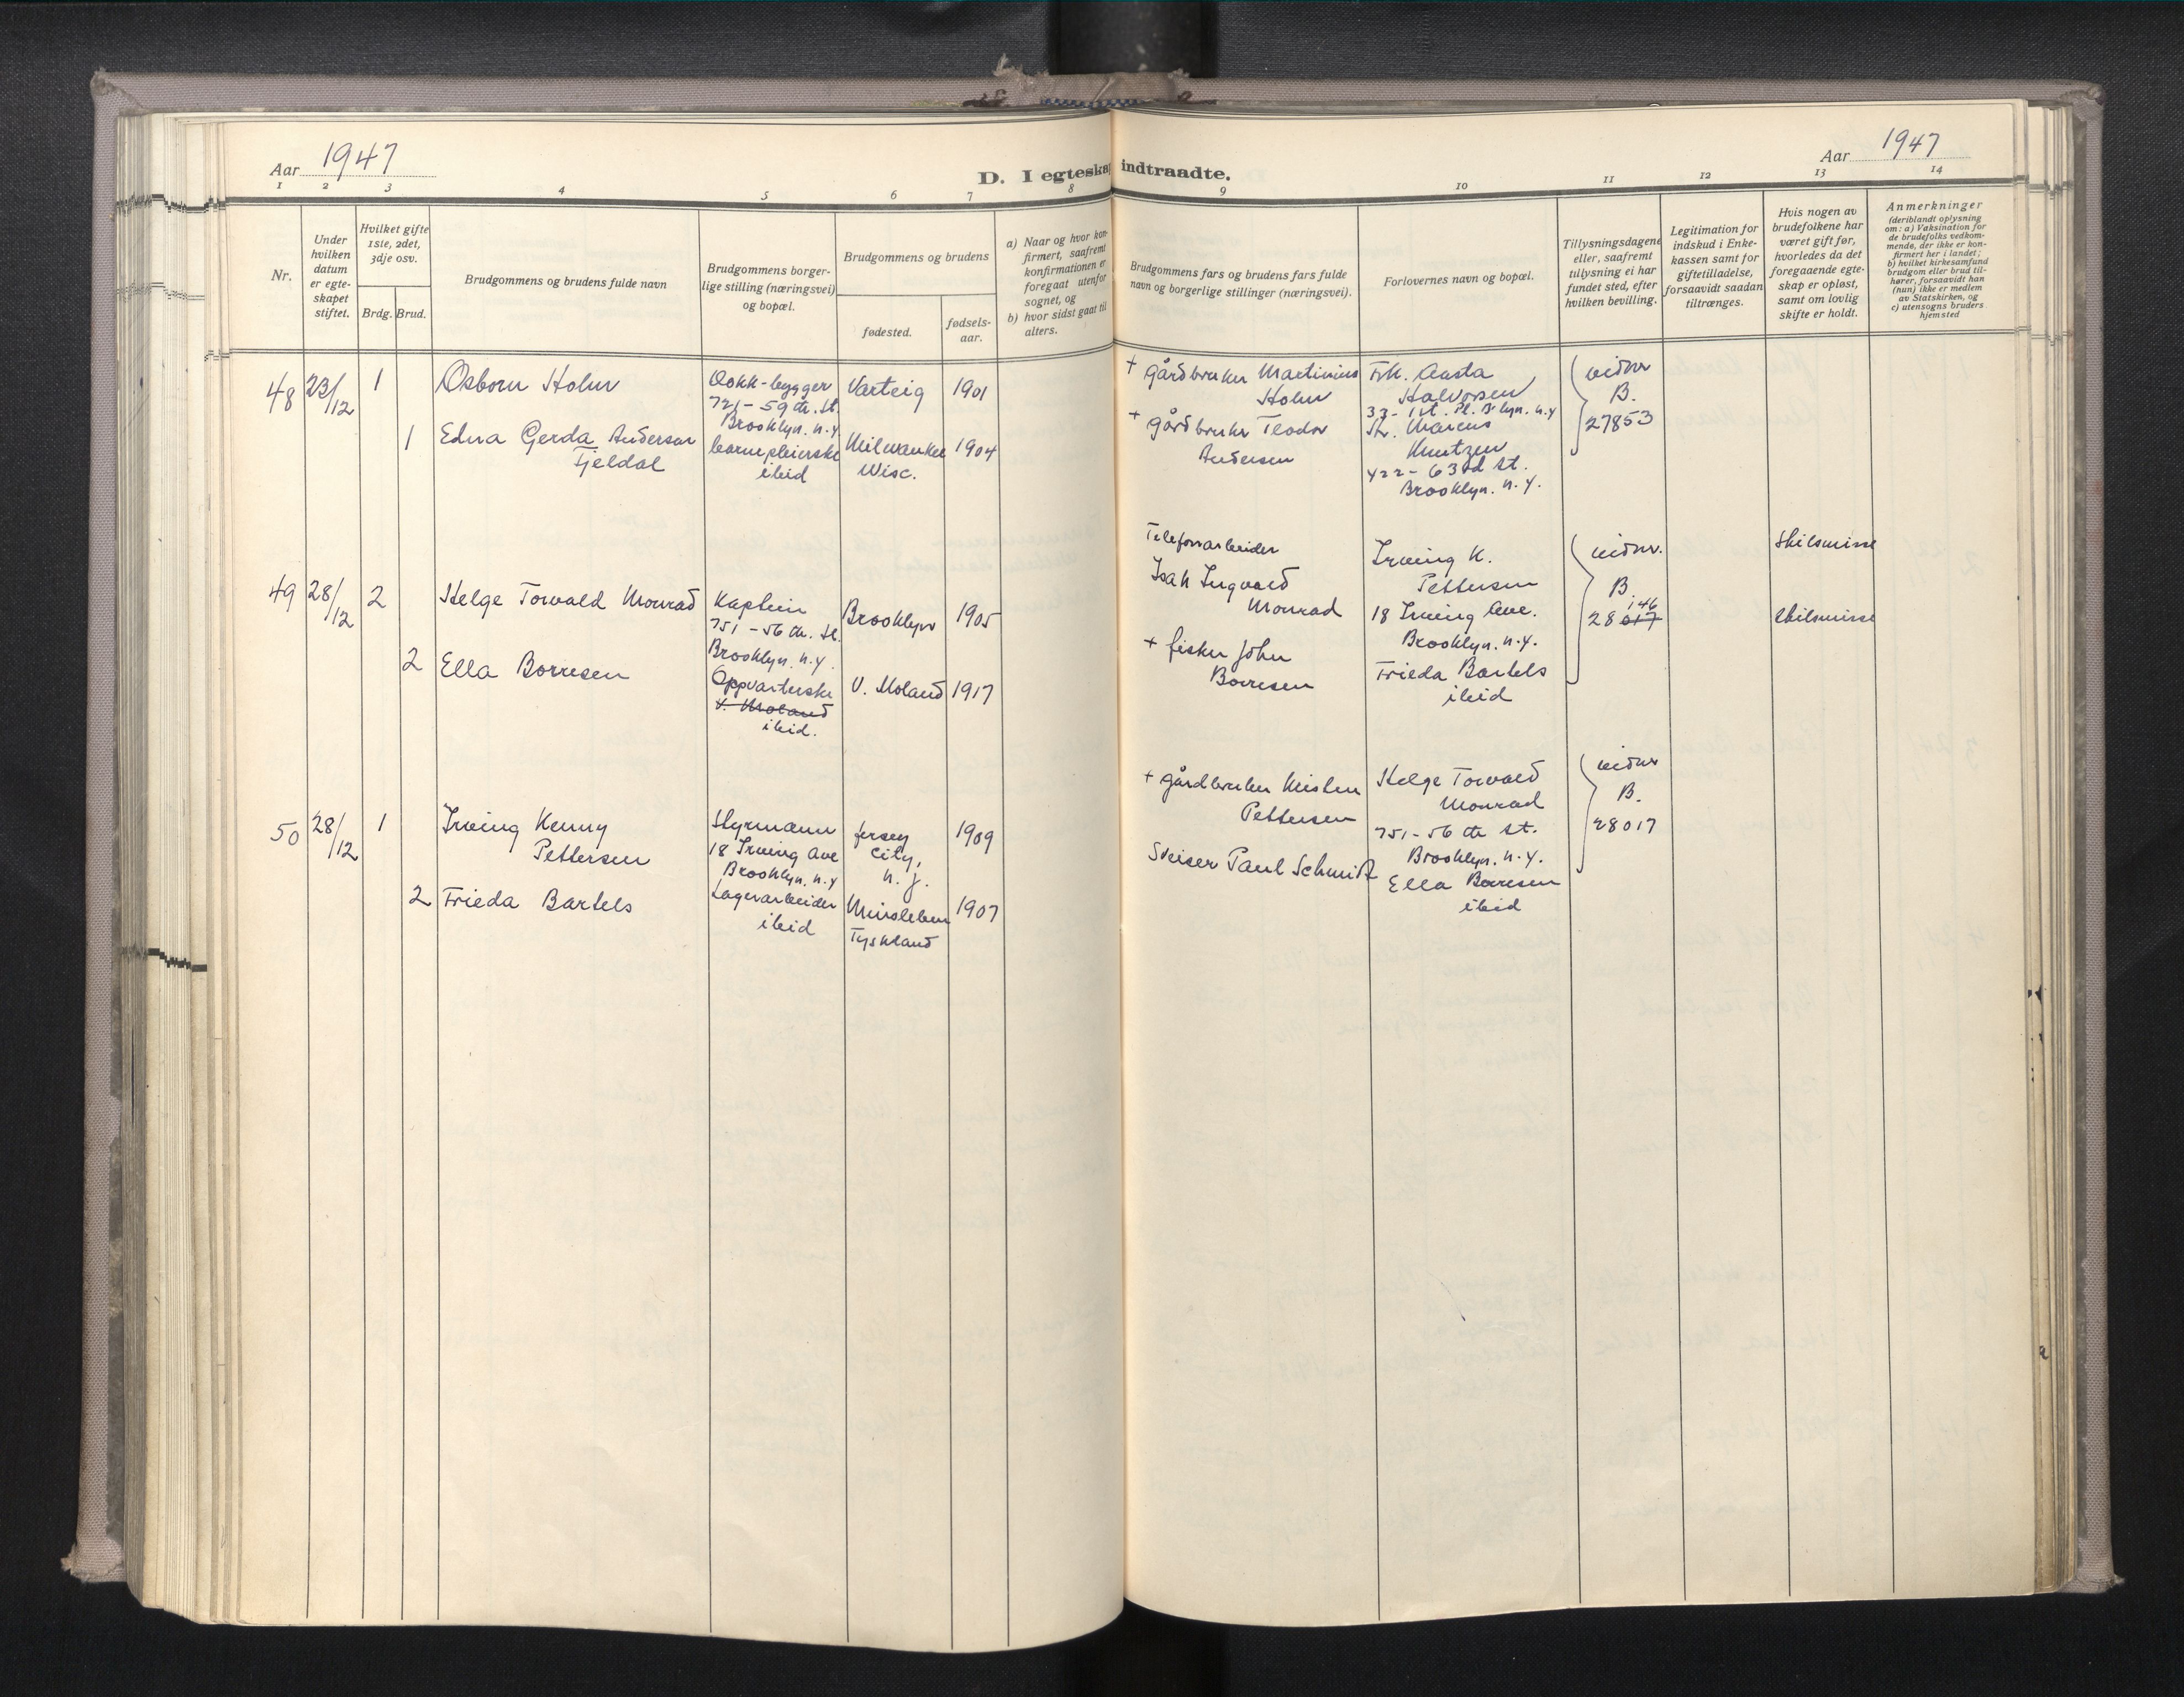 Aar 1947
D. I egteskap indtraadte.
Aar 1947
1 2 3 4 5 6 7 8 9 10 11 12 13 14
Nr.
Under hvilken datum er egte-skapet stiftet.
Hvilket gifte 1ste, 2det, 3dje osv.
Brdg. Brud.
Brudgommens og brudens fulde navn
Brudgommens borger-lige stilling (næringsvei) og bopæl.
Brudgommens og brudens
fødested.
fødsels-aar.
a) Naar og hvor kon-firmert, saafremt konfirmationen er foregaat utenfor sognet, og
b) hvor sidst gaat til alters.
Brudgommens fars og brudens fars fulde navn og borgerlige stillinger (næringsvei).
Forlovernes navn og bopæl.
Tillysningsdagene eller, saafremt tillysning ei har fundet sted, efter hvilken bevilling.
Legitimation for indskud i Enke-kassen samt for giftetilladelse, forsaavidt saadan tiltrænges.
Hvis nogen av brudefolkene har været gift før, hvorledes da det foregaaende egte-skap er opløst, samt om lovlig skifte er holdt.
Anmerkninger
(deriblandt oplysning om: a) Vaksination for de brudefolks vedkom-mende, der ikke er kon-firmert her i landet; b) hvilket kirkesamfund brudgom eller brud til-hører, forsaavidt han (hun) ikke er medlem av Statskirken, og c) utensogns bruders hjemsted
48 23/12 1
Osborn Holm
Dokk-bygger
721 - 59 th. St.
Brooklyn. N.Y
Varteig 1901
+ gårdbruker Martinius
Holm
Frk. Aasta
Halvorsen
33 - 1st. Pl. B'lyn. N.Y
vidner
B.
27853
1 Edna Gerda Andersen
Fjeldal
barnepleierske
ibid
Milwaukee
Wisc.
1904
+ gårdbruker Teodor
Andersen
Hr. Marius
Knutzen
422 - 63rd St.
Brooklyn. N.Y.
49 28/12 2
Helge Torvald Monrad
Kaptein
751 - 56 th. St.
Brooklyn. N.Y.
Brooklyn 1905
Telefonarbeider
Isak Ingvald
Monrad
Irving K.
Pettersen
18 Irving Ave.
Brooklyn. N.Y.
vidner.
B.
146
28017
skilsmisse
2 Ella Borresen
Oppvarterske
V. Moland
ibid.
V. Moland 1917
+ fisker John
Borresen
Frieda Bartels
ibid
skilsmisse
50 28/12 1
Irving Kenny
Pettersen
Styrmann
18 Irving Ave
Brooklyn. N.Y
Jersey
City,
N.J.
1909
+ gårdbruker
Pettersen
Helge Torvald
Monrad
751 - 56 th St.
Brooklyn. N.Y.
vidner
B.
28017
2 Frieda Bartels
Lagerarbeider
ibid
Minsleben
Tyskland
1907
Sveiser Paul Schmidt
Ella Borresen
ibid